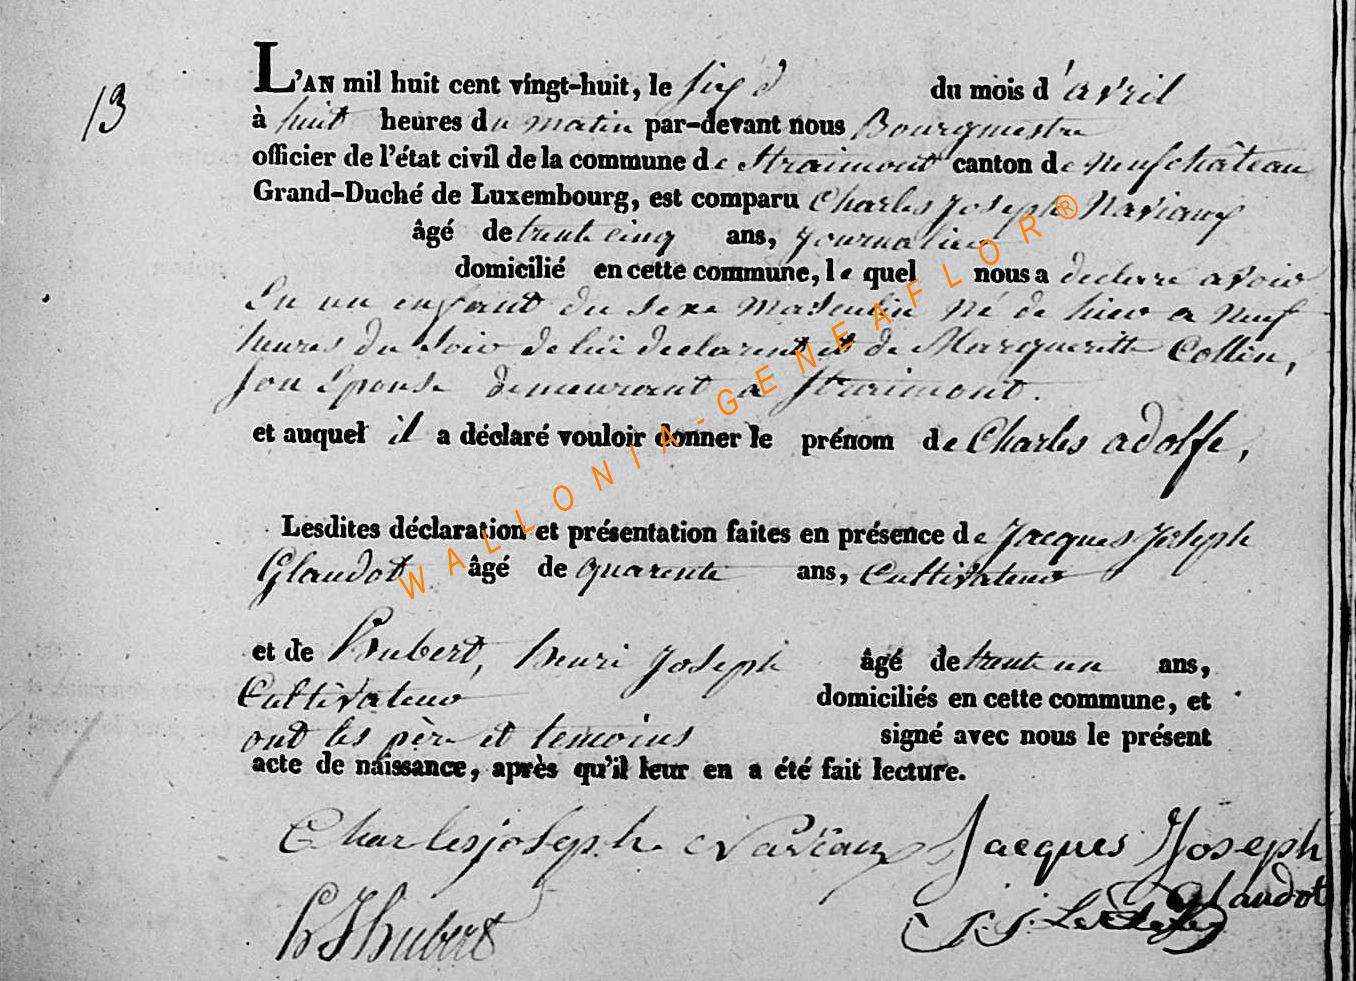 13
L'AN mil huit cent vingt-huit, le six d du mois d'avril
à huit heures du matin par-devant nous Bourgmestre
officier de l'état civil de la commune de Straimont canton de neufchâteau
Grand-Duché de Luxembourg, est comparu Charles Joseph Naviaux
âgé de trente cinq ans, journalier
domicilié en cette commune, le quel nous a declare avoir
Eu un enfant du sexe masculin né de hier a neuf
heures du soir de lui declarent et de Margueritte Collin,
son Epouse demeurant a Straimont.
et auquel il a déclaré vouloir donner le prénom de Charles adolfe,
Lesdites déclaration et présentation faites en présence de Jacques Joseph
Glaudot âgé de quarente ans, Cultivateur
et de Hubert, henri Joseph âgé de trente un ans,
Cultivateur domiciliés en cette commune, et
ont les père et temoins signé avec nous le présent
acte de naissance, après qu'il leur en a été fait lecture.
Charles joseph Naviaux Jacques Joseph
Glaudot
h J hubert J. J.
WALLONIA-GENEAFLOR®